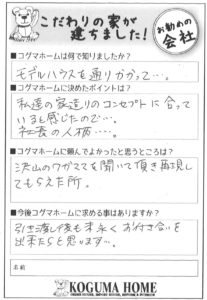 こだわりの家が
建ちました!
お勧めの
会社
■コグマホームは何で知りましたか?
モデルハウスを通りがかって…。
■コグマホームに決めたポイントは?
私達の家造りのコンセプトに合って
いると感じたので…。
社長の人柄….
■コグマホームに頼んでよかったと思うところは?
沢山のワガママを聞いて頂き再現し
てもらえた所。
■今後コグマホームに求める事はありますか?
引き渡し後も末永くお付き合いを
出来たらと思います…。
名前
KOGUMA HOME